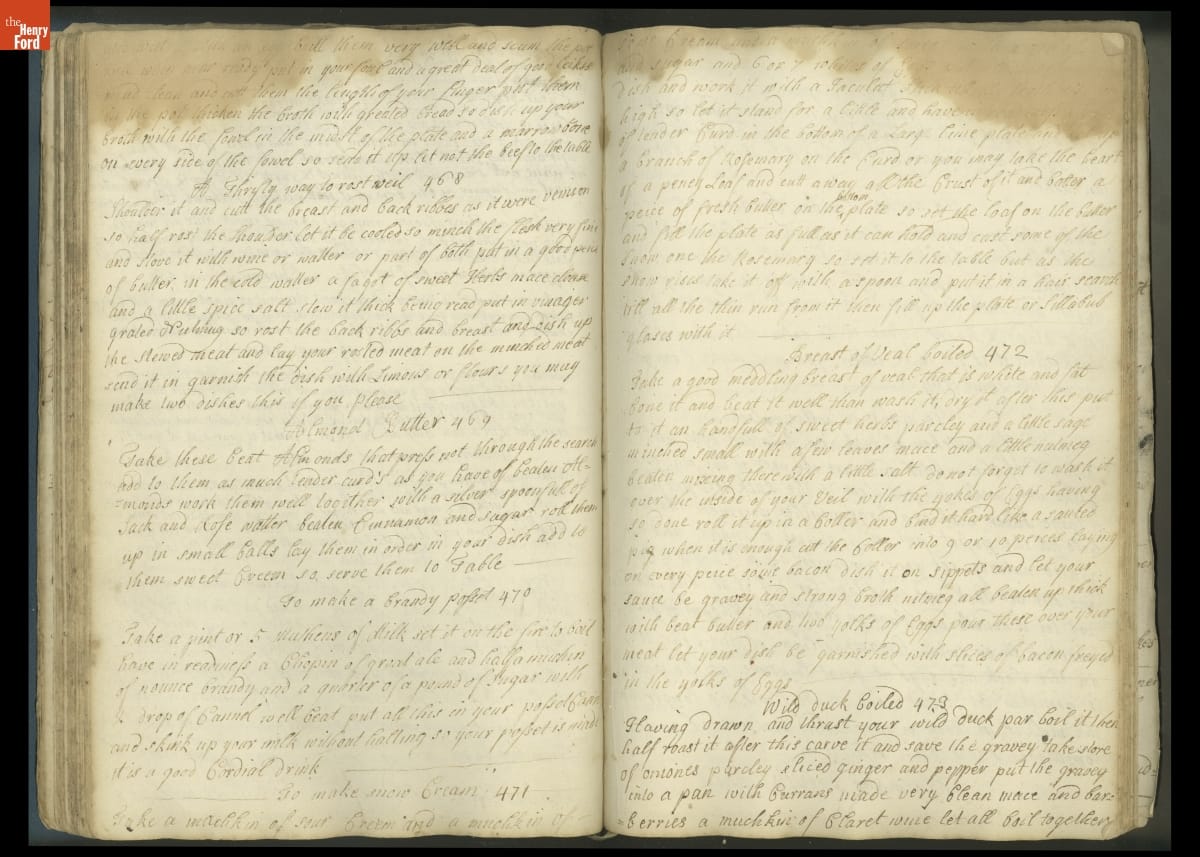 the Henry Ford
boill them very well and scum the pot
when your ready put in your foul and a great deal of good
clean and cutt them the length of your finger put them
in the pot thicken the broth with greated bread so dish up your
broth with the fowel in the midst of the plate and a marrow bone
on every side of the fowel so send it up let not the beef to the table
A Thryfty way to rost veil 468
Shoulder it and cutt the breast and back ribbes as it were venison
so half rost the shoulder let it be cooled so minch the flesh very fine
and stove it with wine or watter or part of both put in a good peice
of butter, in the cold watter a fagot of sweet Herbs mace
and a little spice salt stew it thick being read put in vinager
grated Nutmug so rost the back ribbs and breast and dish up
the stewed meat and lay your rosted meat on the minched meat
send it in garnish the dish with Limons or flours you may
make two dishes this if you please
Almond Butter 469
Take these beat Almends that press not through the search
add to them as much tender curds as you have of beaten Al=
=monds work them well together with a silver spoonfull of
Sack and Rose watter beaten Cinnamon and sugar roll them
up in small balls lay them in order in your dish add to
them sweet Creem so, serve them to Table
To make a brandy posset 470
Take a pint or 5 Mutchens of Milk set it on the fire to boil
have in readiness a Chopin of groat ale and half a muchkin
of nounce brandy and a quarter of a pound of Sugar with
drop of Cannel well beat put all this in your posset Cann
and skink up your milk without halting so your posset is made
it is a good Cordial drink
To make snow Cream 471
Take a machkin of sour Creem and a muchkin of
and sugar and 6 or 7 whites of
dish and work it with a
high so let it stand for a little and have
of tender Curd in the bottom of a Large plate and
a branch of Rosemary on the Curd or you may take the heart
of a peney Loaf and cutt away all the Crust of it and botter a
peice of fresh butter on the bottom plate so set the loaf on the butter
and fill the plate as full as it can hold and cast some of the
snow one the Rosemary so set it to the table but as the
snow rises take it off with a spoon and put it in a hair search
till all the thin run from it then fill up the plate or Sillabub
glases with it
Breast of Veal boiled 472
Take a good meddling breast of veal that is white and fat
bone it and beat it well than wash it, dry it after this put
to it an handfull of sweet herbs parcley and a little sage
minched small with a few leaves mace and a little nutmeg
beaten mixing there with a little salt do not forget to wash it
over the inside of your Veil with the yokes of Eggs having
so done roll it up in a Coller and bind it hard like a sauted
pig when it is enough cut the Coller into 9 or 10 peices laying
on every peice some bacon dish it on sippets and let your
sauce be gravey and strong broth nutmeg all beaten up thick
with beat butter and two yolks of Eggs pour these over your
meat let your dish be garnished with slices of bacon freyed
in the yorks of Eggs
Wild duck boiled 473
Having drawn and thrust your wild duck par boil it then
half roast it after this carve it and save the gravey take store
of oniones parcley sliced ginger and pepper put the gravey
into a pan with Currans made very clean mace and bar=
=berries a muchkin of Claret wine let all boil together